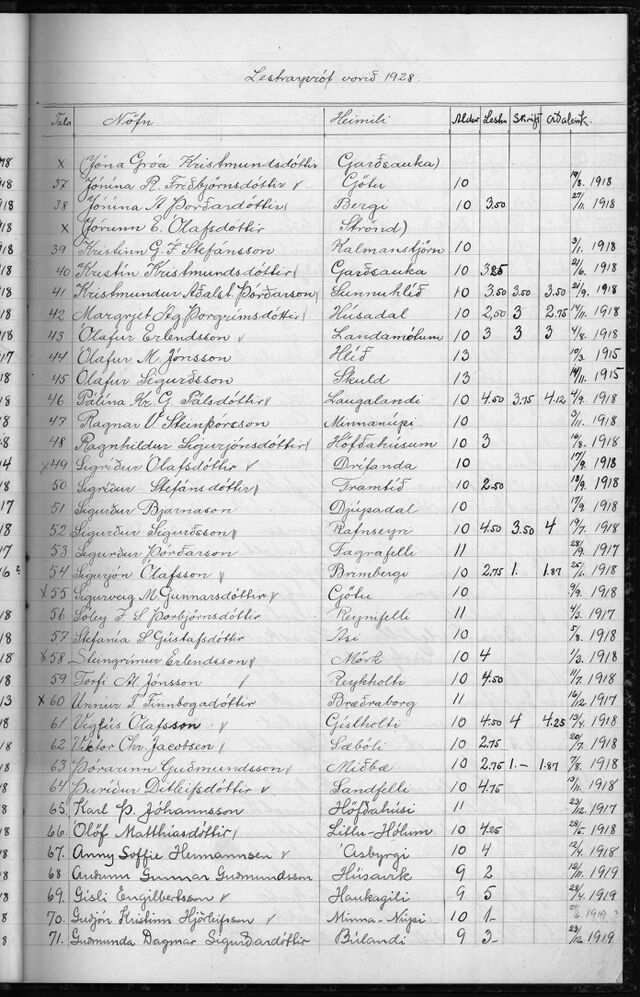 Lestrarpróf vorið 1928.
Tala Nöfn Heimili Aldur Lestur Skrift Aðaleink.
x (Jóna Gróa Kristmundsdóttir Garðsauka)
37 Jónína R. Friðbjörnsdóttir v Götu 10 19/8. 1918
38 Jónína A Þórðardóttir Bergi 10 3.50 27/11. 1918
x (Jórunn E. Ólafsdóttir Strönd)
39 Kristinn G. F. Stefánsson Kalmanstjörn 10 3/1. 1918
40 Kristín Kristmundsdóttir Garðsauka 10 3.25 21/6. 1918
41 Kristmundur Aðalst. Þórðarson Sunnuhlíð 10 3.50 3.50 3.50 21/9. 1918
42 Margrjet Þorgrímsdóttir Húsadal 10 2,50 3 2.75 14/11. 1918
43 Ólafur Erlendsson v Landamótum 10 3 3 3 4/8. 1918
44 Ólafur M. Jónsson Hlíð 13 10/3. 1915
45 Ólafur Sigurðsson Skuld 13 14/11. 1915
46 Pálína Kr. G. Pálsdóttir Laugalandi 10 4.50 3.75 4.12 4/9. 1918
47 Ragnar V Steinþórsson Minnanúpi. 10 3/11. 1918
48 Ragnhildur Sigurjónsdóttir Höfðahúsum 10 3 16/8. 1918
x49 Sigríður Ólafsdóttir v Drífanda 10 17/9. 1918
50 Sigríður Stefánsdóttir Framtíð 10 2.50 13/9. 1918
51 Sigurður Bjarnason Djúpadal 10 17/9. 1918
52 Sigurður Sigurðsson Rafnseyri 10 4.50 3.50 4 19/7. 1918
53 Sigurður Þórðarson Fagrafelli 11 28/9. 1917
54 Sigurjón Ólafsson v Brimbergi 10 2,75 1. 1.87 25/1. 1918
x55 Sigurveig M. Gunnarsdóttir v Götu 10 9/9. 1918
56 Sóley F. S. Þorbjörnsdóttir Reynifelli 11 4/3. 1917
57 Stefanía S Gústafsdóttir Ási 10 5/8. 1918
x58 Steingrímur Erlendsson Mörk 10 4 11/3. 1918
59 Torfi M. Jónsson Reykholti 10 4.50 11/7. 1918
x60 Unnur F. Finnbogadóttir Bræðraborg 11 16/12. 1917
61 Vigfús Ólafsson v Gíslholti 10 4.50 4 4.25 13/4. 1918
62. Viktor Chr. Jacobsen Sæbóli 10 2.75 20/7. 1918
63 Þórarinn Guðmundsson Miðbæ 10 2.75 1.- 1.87 7/8. 1918
64 Þuríður Ditleifsdóttir v Sandfelli 10 4.75 13/11. 1918
65. Karl Þ. Jóhannsson Höfðahúsi 11 23/12. 1917
66. Ólöf Matthíasdóttir Litlu-Hólum 10 4.25 28/5. 1918
67. Anny Soffie Hermannsen v Ásbyrgi 10 4 12/4. 1918
68 Auðunn Gunnar Guðmundsson Húsavík 9 2 12/11. 1919
69. Gísli Engilbertsson v Haukagili 9 5 28/4. 1919
70. Guðjón Kristinn Hjörleifsson v Minna-Núpi 10 1- 1919?
71. Guðmunda Dagmar Sigurðardóttir Búlandi 9 3- 23/12. 1919